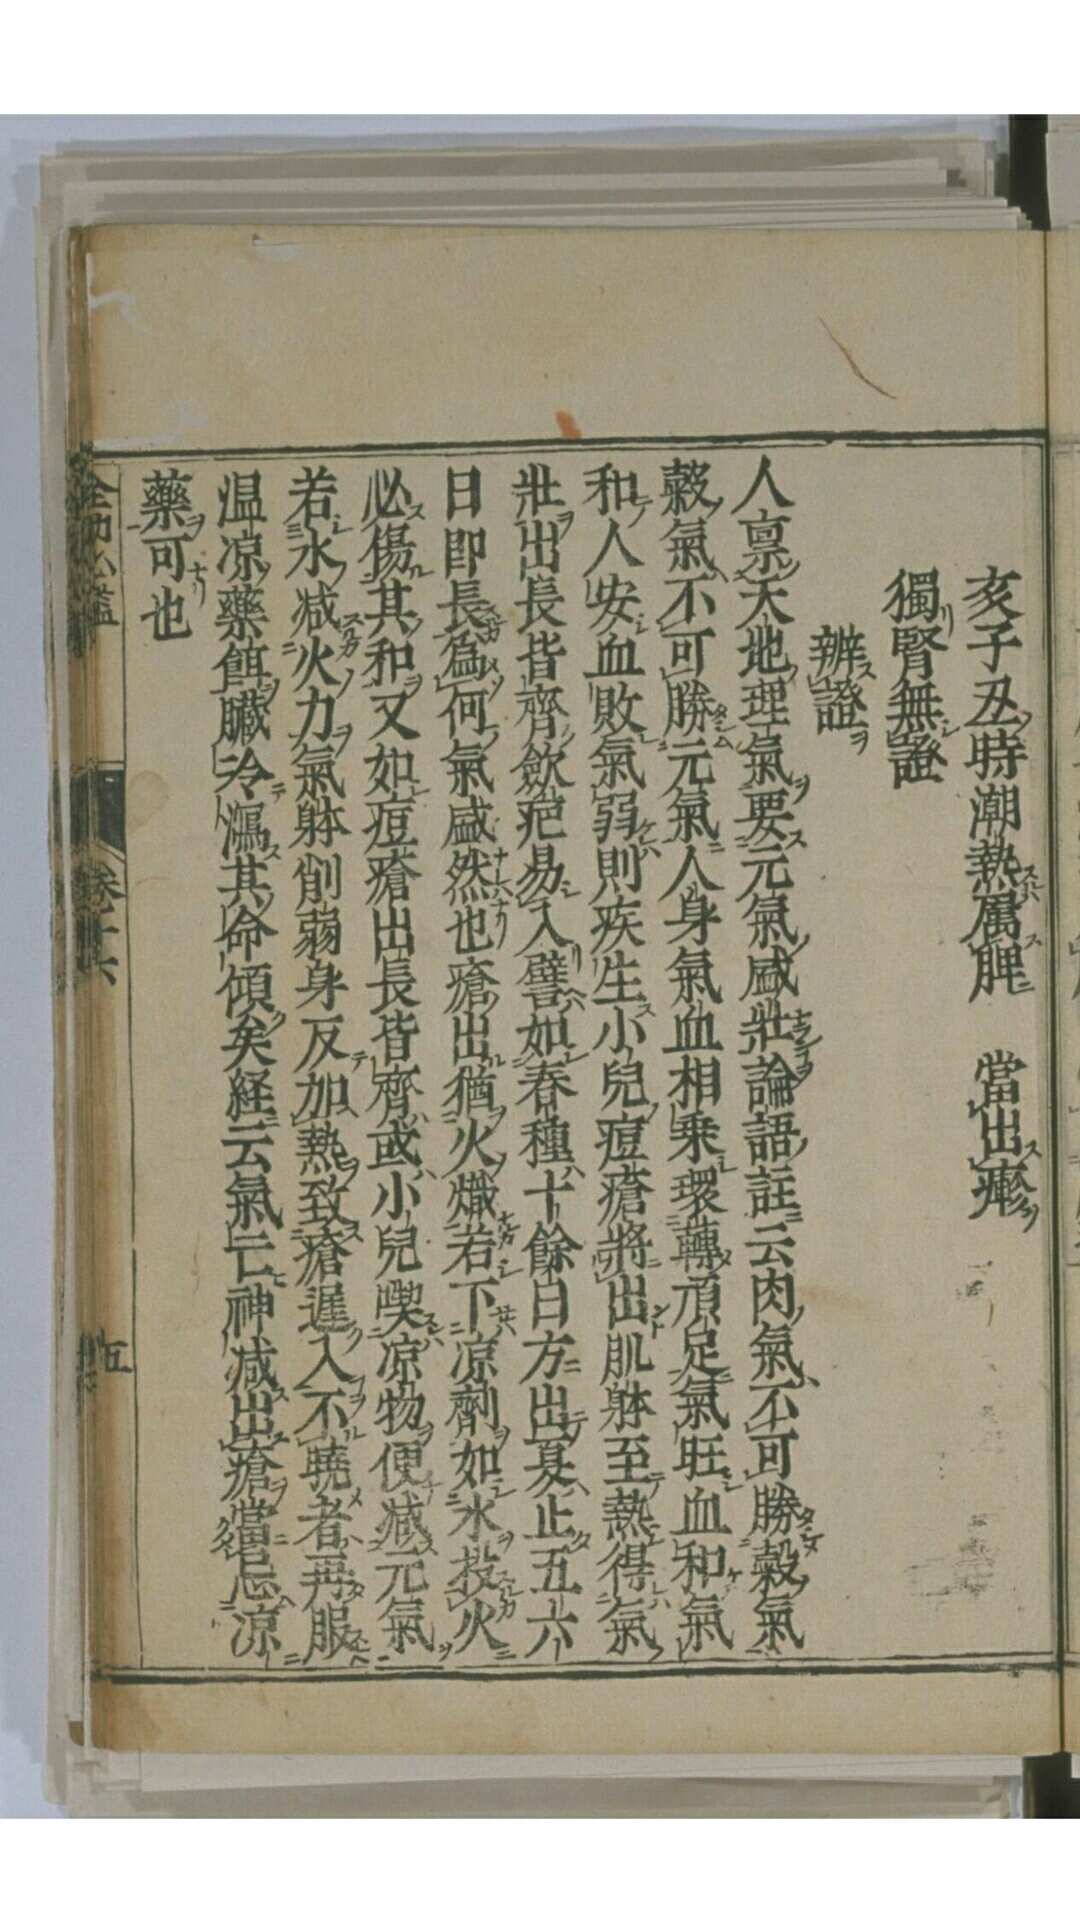 亥子丑時潮熱属脾　當出疹
獨腎無證
辨證
人禀天地理氣要元氣盛壯論語註云肉氣不可勝穀氣
穀氣不可勝元氣人身氣血相乗環轉湏足氣旺血和氣
和人安血敗氣弱則疾生小兒痘瘡將出肌躰至熱得氣
壯出長皆齊歛疤易入譬如春種十餘日方出夏止五六
日即長為何氣盛然也瘡出猶火熾若下凉劑如水投火
必傷其和又如痘瘡出長皆齊或小兒喫凉物便减元氣
若水减火力氣躰削弱身反加熱致瘡遅入不曉者再服
温凉藥餌臟冷瀉其命傾矣経云氣亡神减出瘡當忌凉
藥可也
全幼心鑑
五